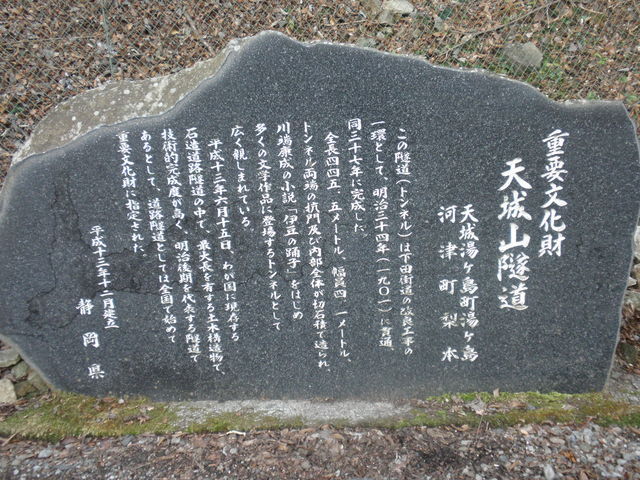 重要文化財
天城山隧道
天城湯ヶ島町湯ヶ島
河津町梨本
この隧道(トンネル)は下田街道の改良工事の
一環として、明治三十四年(一九〇一)に貫通、
同三十七年に完成した。
全長四四五.五メートル、幅員四.一メートル、
トンネル両端の坑門及び内部全体が切石積で造られ、
川端康成の小説「伊豆の踊子」をはじめ
多くの文学作品に登場するトンネルとして
広く親しまれている。
平成十三年六月十五日、わが国に現存する
石造道路隧道の中で、最大長を有する土木構造物で、
技術的完成度が高く、明治後期を代表する隧道で
あるとして、道路隧道としては全国で始めて
重要文化財に指定された。
平成十三年十二月建立
静岡県